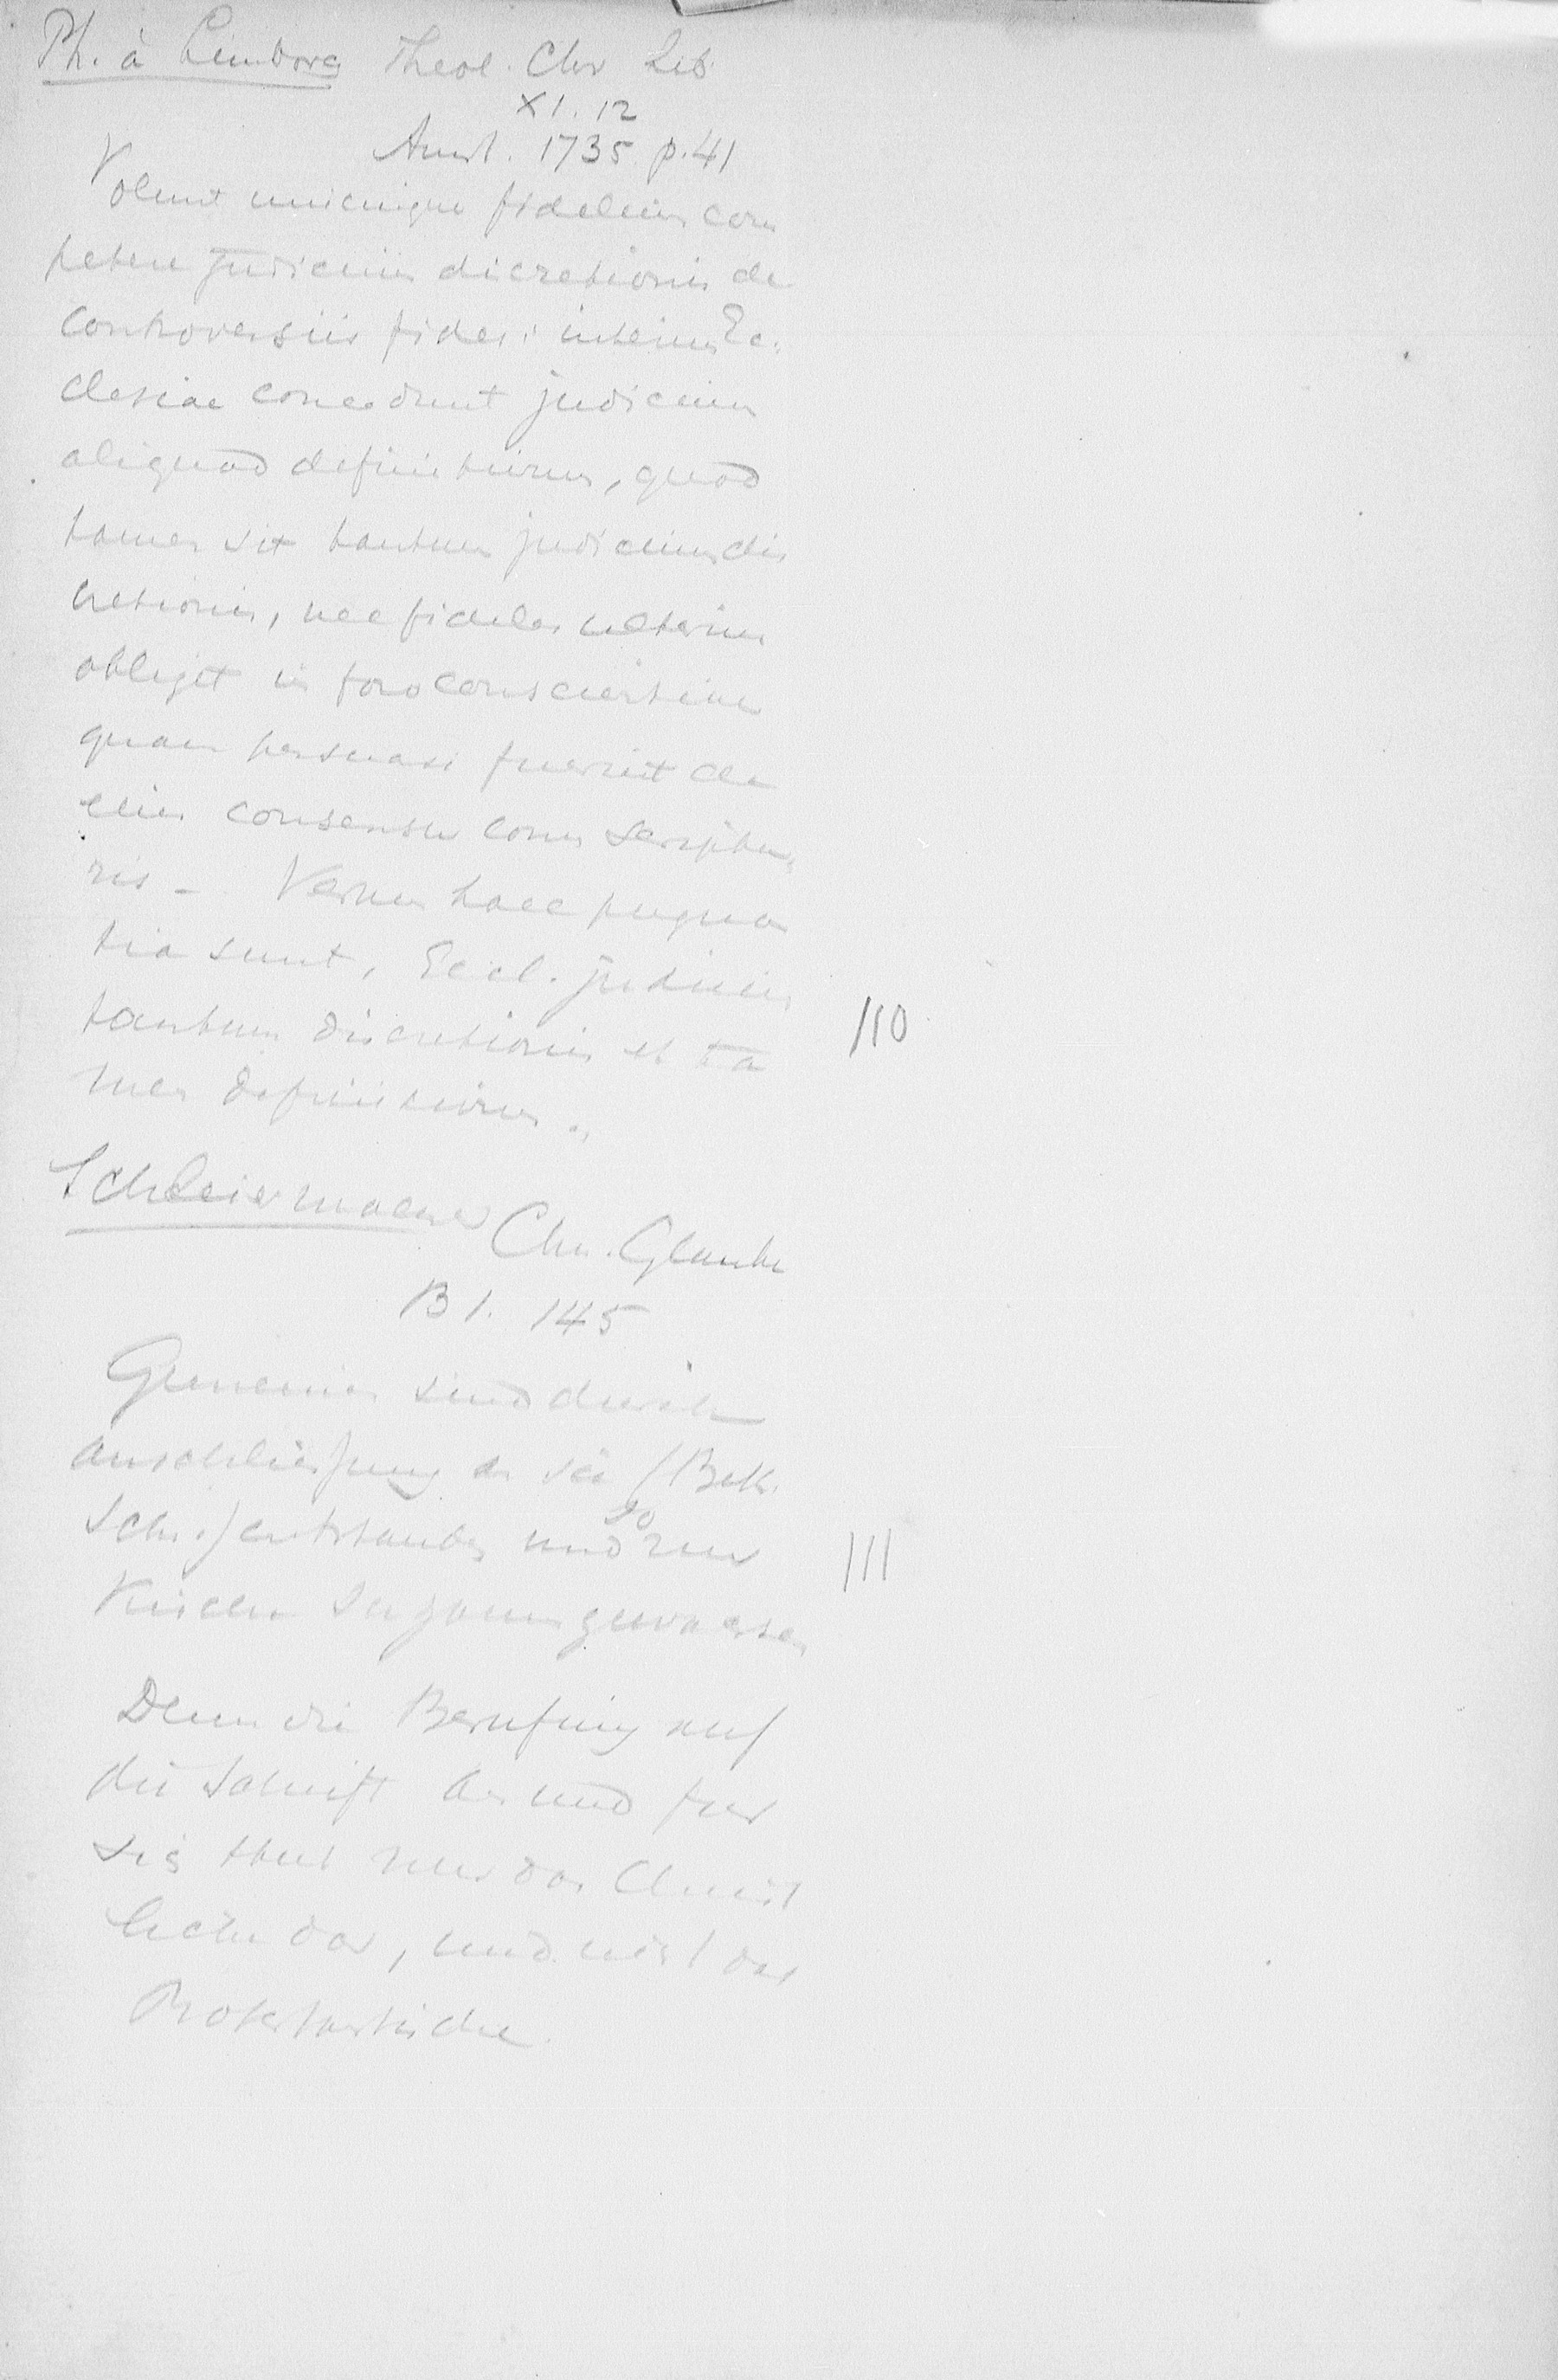 Ph. à Limborg Theol. Chr Lib
XI. 12
Amst. 1735 p. 41
Volunt unicuique fidelium com
petere judicium discretionis de
controversiis fidei: interim Ec.
clesiae concedunt judicium
aliquod definitivum, quod
tamen sit tantum judicium dis
cretionis, nec fideles ulterius
obliget in foro conscientiae
quam persuasi fuerint de
eius consensu cum scriptu
ris - Verum haec pugnan
tia sunt, Eccl. judicium
tantum discretionis et ta
men definitivum.
110
Schleiermacher Chr. Glaube
B 1. 145
Gemeinen sind durch
Anschließung an sie (Bek.
Schr.) entstanden und so zur
111
Kirche zusammengewachsen
Denn die Berufung auf
die Schrift an und für
sich thut nur das Christ
liche dar, und nicht das
Protestantische.